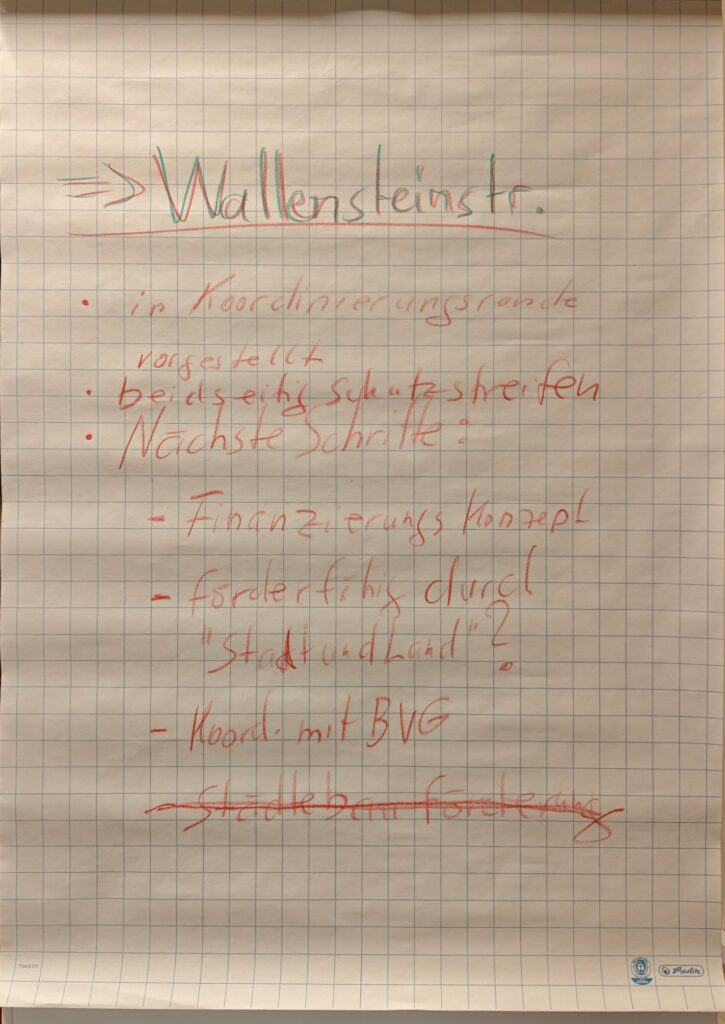 => Wallensteinstr.
• in Koordinierungsrunde
vorgestellt
• beidseitig Schutzstreifen
• Nächste Schritte:
- Finanzierungs Konzept
- förderfähig durch
"Stadt und Land"?
- Koord. mit BVG
- Städtebauförderung
Herlitz